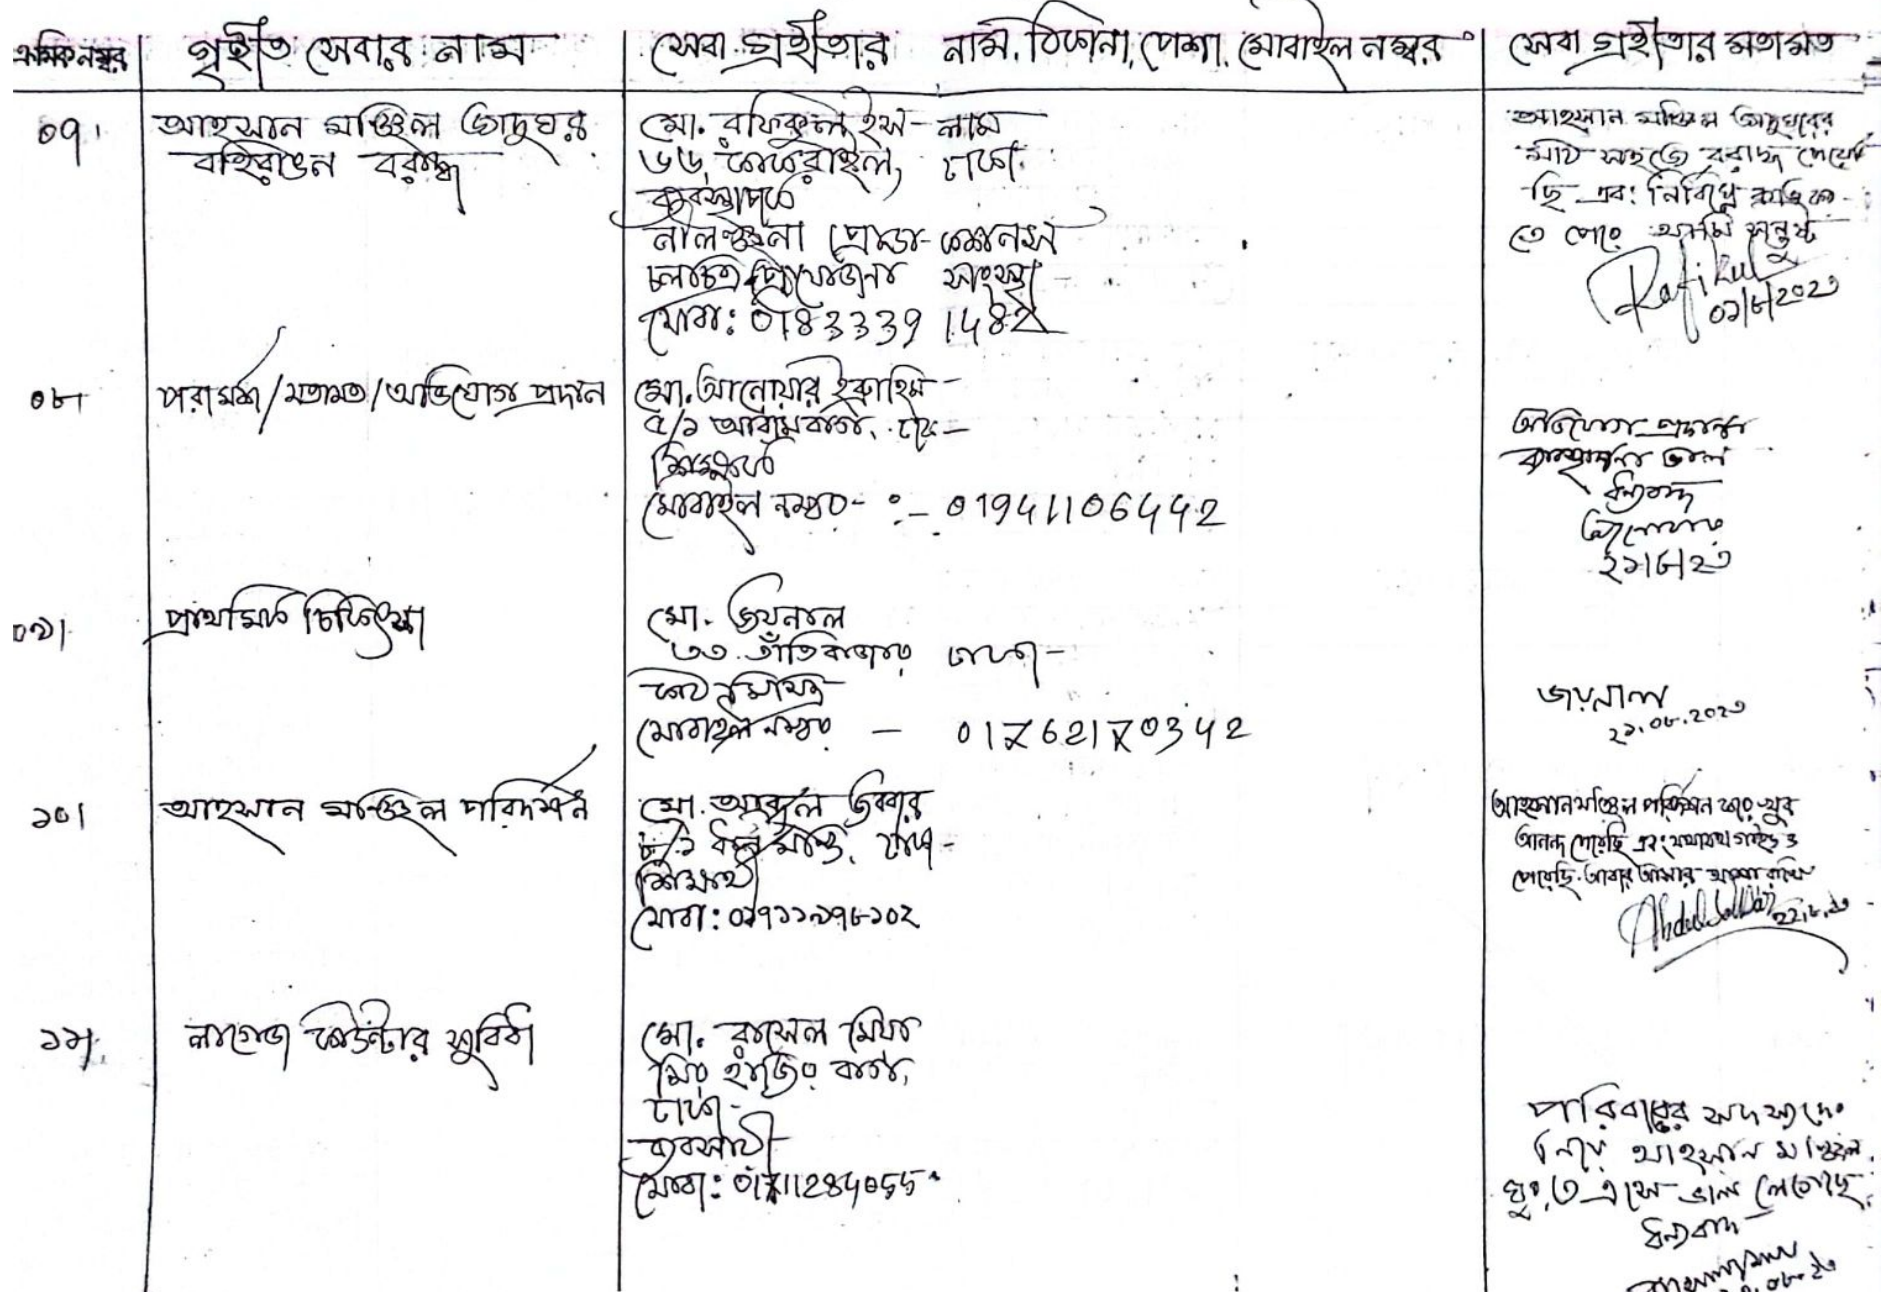 ক্রমিক নম্বর গৃহীত সেবার নাম সেবা গ্রহীতার নাম, ঠিকানা, পেশা, মোবাইল নম্বর সেবা গ্রহীতার মতামত
০৭। আহসান মঞ্জিল জাদুঘর
বহিরাঙ্গন বরাদ্ধ
মো. রফিকুল ইসলাম
৬৬, কাকরাইল, ঢাকা
ব্যবস্থাপক
নীলঞ্জনা প্রোডাকশানস
চলচ্চিত্র প্রিযোজনা সংস্থা
মোবা: 01833391482
আহসান মঞ্জিল জাদুঘরের
সহজে বরাদ্দ পেয়ে
ছি এবং নির্বিঘ্নে
তে পেরে আমি সন্তুষ্ট
Rafikul
০১/৮/২০২৩
০৮। পরামর্শ/মতামত/অভিযোগ প্রদান
মো. আনোয়ার ইব্রাহিম
৫/১ আরামবাগ, ঢাকা
শিক্ষক
মোবাইল নম্বর- :- 01941106442
অভিযোগ প্রদান
ব্যবস্থাপনা ভাল
ধন্যবাদ
আনোয়ার
২১/৮/২৩
০৯। প্রাথমিক চিকিৎসা
মো. জয়নাল
৩৩ তাঁতিবাজার ঢাকা
কাঠ মিস্ত্রি
মোবাইল নম্বর — 01762170342
জয়নাল
২১.০৮.২০২৩
১০। আহসান মঞ্জিল পরিদর্শন
মো. আব্দুল জব্বার
৮/১ ধানমন্ডি, ঢাকা
শিক্ষার্থী
মোবা: ০১৭১১৯৭৮১০২
আহসান মঞ্জিল পরিদর্শন করে খুব
আনন্দ পেয়েছি এবং যথাযথ গাইড ও
পেয়েছি. আবার আসার আশা রাখি
Abdul Jabbar
২২.৮.২৩
১১। লাগেজ কাউন্টার সুবিধা
মো. রাসেল মিয়া
মির হাজির বাগ,
ঢাকা
ব্যবসায়ী
মোবা: 01711284055
পরিবারের সদস্যদের
নিয়ে আহসান মঞ্জিল
ঘুরতে এসে ভাল লেগেছে
ধন্যবাদ